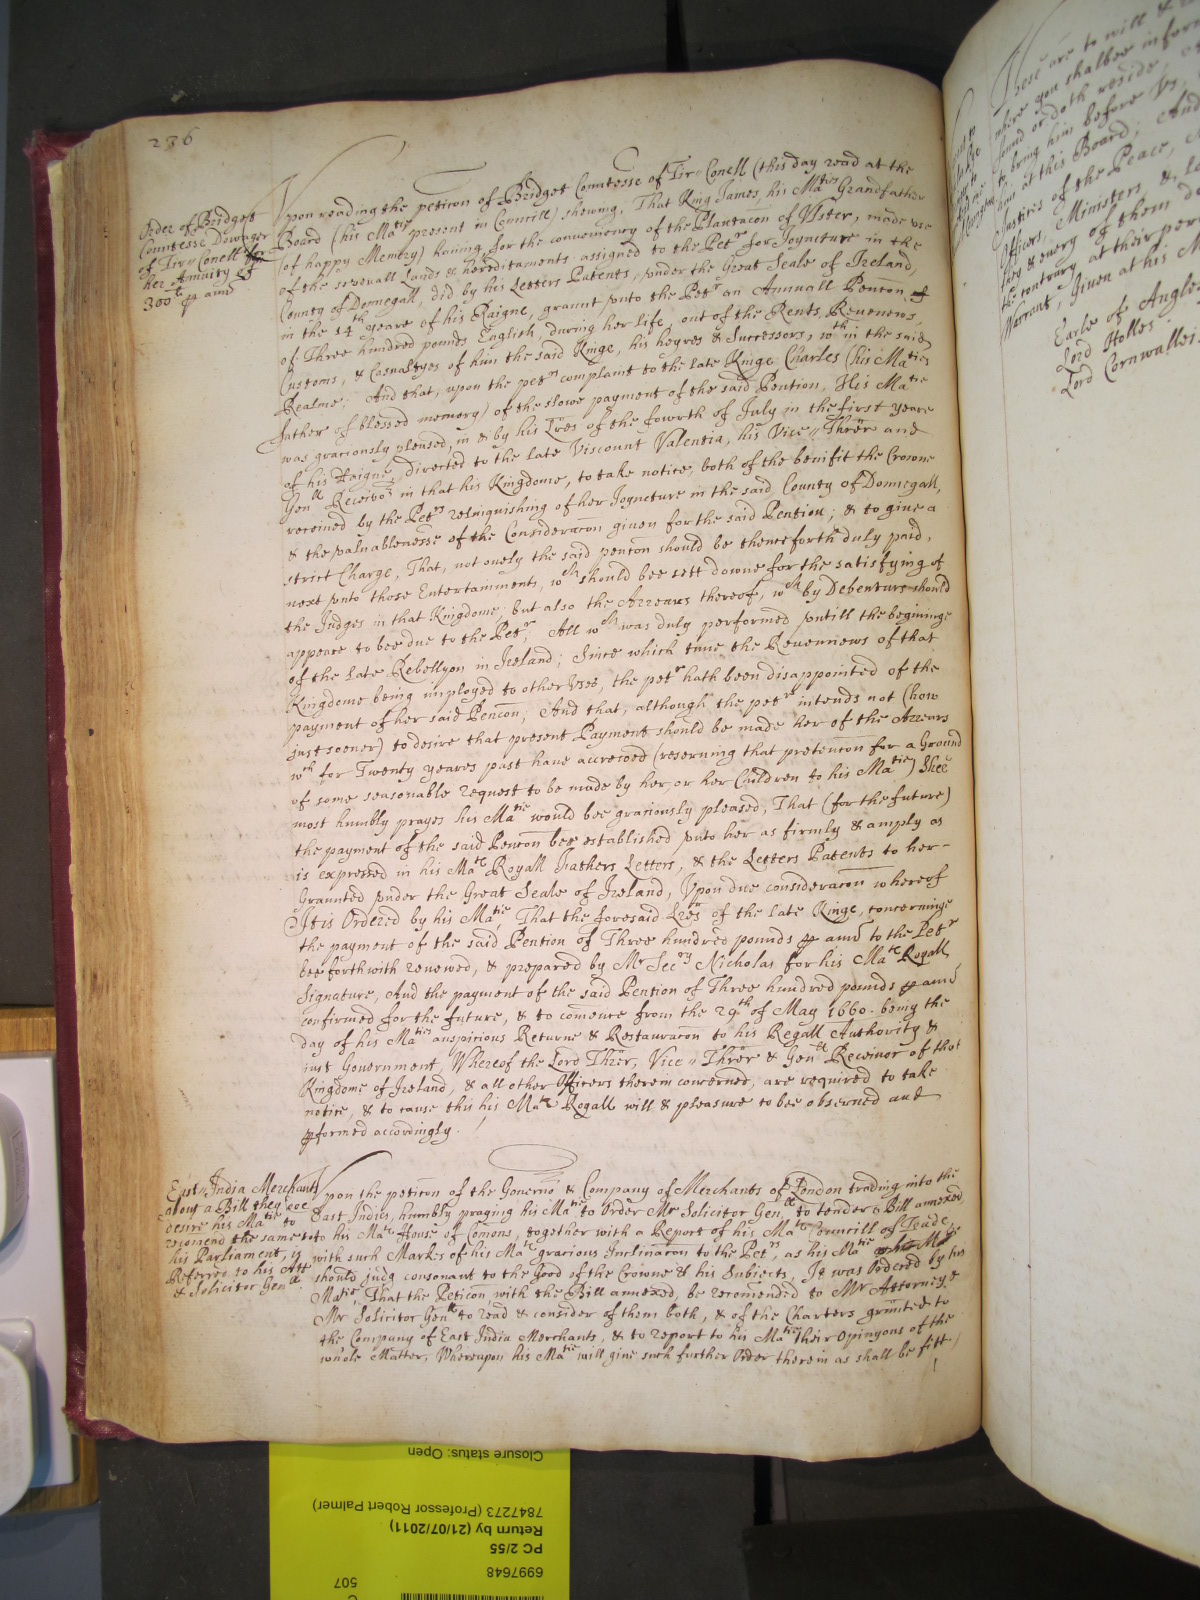 236
Order of Bridgett
Countesse Dowager
of Tir=Conell for
her Annuity of
300li p annu
Vpon reading the peticon of Bridget Countesse of Tir=Conell (this day read at the
Board (his Matie present in Councill) shewing, That King James his Maties Grandfather
(of happy Memory) hauing for the conueniency of the Plantacon of Vlster, made vse
of the seuerall Lands & hereditaments assigned to the Petr for Joyncture in the
County of Donnegall, did by his Letters Patents, vnder the Great Seale of Ireland,
in the 14th yeare of his Raigne, graunt vnto the Petr an Annuall Pencon of
of Three hundred pounds English, during her life, out of the Rents, Reuenews,
Customs, & Casualtyes of him the said Kinge, his heyres & Successors, wthin the said
Realme; And that, upon the petrs complaint to the late Kinge Charles (his Maties
father of blessed memory) of the slowe payment of the said Pention, His Matie
was graciously pleased, in & by his Lres of the fowrth of July in the first yeare
of his Raigne, directed to the late Viscount Valentia, his Vice=Threr and
Genll Receivor in that his Kingdome, to take notice, both of the benifit the Crowne
receiued by the Petrs relinquishing of her Joyncture in the said County of Donnegall,
& the valuablenesse of the Consideracon giuen for the said Pention; & to giue a
strict Charge, That, not onely the said pencon should be thenceforth duly paid,
next vnto those Entertainments, wch should bee sett downe for the satisfying of
the Judges in that Kingdome, but also the Arreares thereof, wch by Debenturs should
appeare to bee due to the Petr, All wch was duly performed vntill the begininge
of the late Rebellyon in Ireland; Since which time the Reuennews of that
Kingdome being imployed to other Vses, the petr hath been disappointed of the
payment of her said Pencon; And that, although the petr intends not (how
just soeuer) to desire that present Payment should be made her of the Arrears
wch for Twenty yeares past haue accrewed (reseruing that pretencon for a Ground
of some seasonable request to be made by her, or her Children to his Matie) Shee
most humbly prayes his Matie would bee graciously pleased, That (for the future)
the payment of the said Pencon bee established vnto her as firmly & amply as
is expressed in his Mats Royall Fathers Letters, & the Letters Patents to her
Graunted vnder the Great Seale of Ireland, Vpon due consideracon whereof
It is Ordered by his Matie, That the foresaid Lres of the late Kinge, concerninge
the payment of the said Pention of Three hundred pounds p annu to the Petr
bee forthwith renewed, & prepared by Mr Secry Nicholas for his Mats Royall
Signature, And the payment of the said Pention of Three hundred pounds p annu
confirmed for the future, & to comence from the 29th of May 1660. being the
day of his Maties auspicious Returne & Restauracon to his Regall Authority &
just Gouernment, Whereof the Lord Threr, Vice=Threr & Genll Receiuor of that
Kingdome of Ireland, & all other Officers therein concerned, are required to take
notice, & to cause this his Mats Royall will & pleasure to bee obserued and
pformed accordingly.
East=India Merchants
about a Bill they
desire his Matie to
recomend the same to
his Parliament, is
Referred to his Att
& Solicitor Genll.
Vpon the peticon of the Gouernor & Company of Merchants of London trading into the
East Indies, humbly praying his Matie to Order Mr Solicitor Genll, to tender a Bill annexed
to his Mats House of Comons, together with a Report of his Mats Councill of Trade,
with such Markes of his Mats gracious Inclinacon to the Petrs, as his Matie
should judg consonant to the Good of the Crowne & his Subjects, It was Ordered by his
Matie, That the Peticon with the Bill annexed, be recomended to Mr Attorney, &
Mr Solicitor Genll to read & consider of them both, & of the Charters graunted to
the Company of East India Merchants, & to report to his Matie their Opinyons of the
whole Matter, Whereupon his Matie will giue such further Order therein as shall be fitt.
These are to will &
where you shalbee inform
found or doth reside,
to bring him before vs,
at this Board; And
Justices of the Peace,
Officers, Ministers, &
they & euery of them
the contrary at their per
Warrant, Giuen at his
Earle of Angles
Lord Holles
Lord Cornwalleis
Closure status: Open
7847273 (Professor Robert Palmer)
Return by (21/07/2011)
PC 2/55
6997648
507